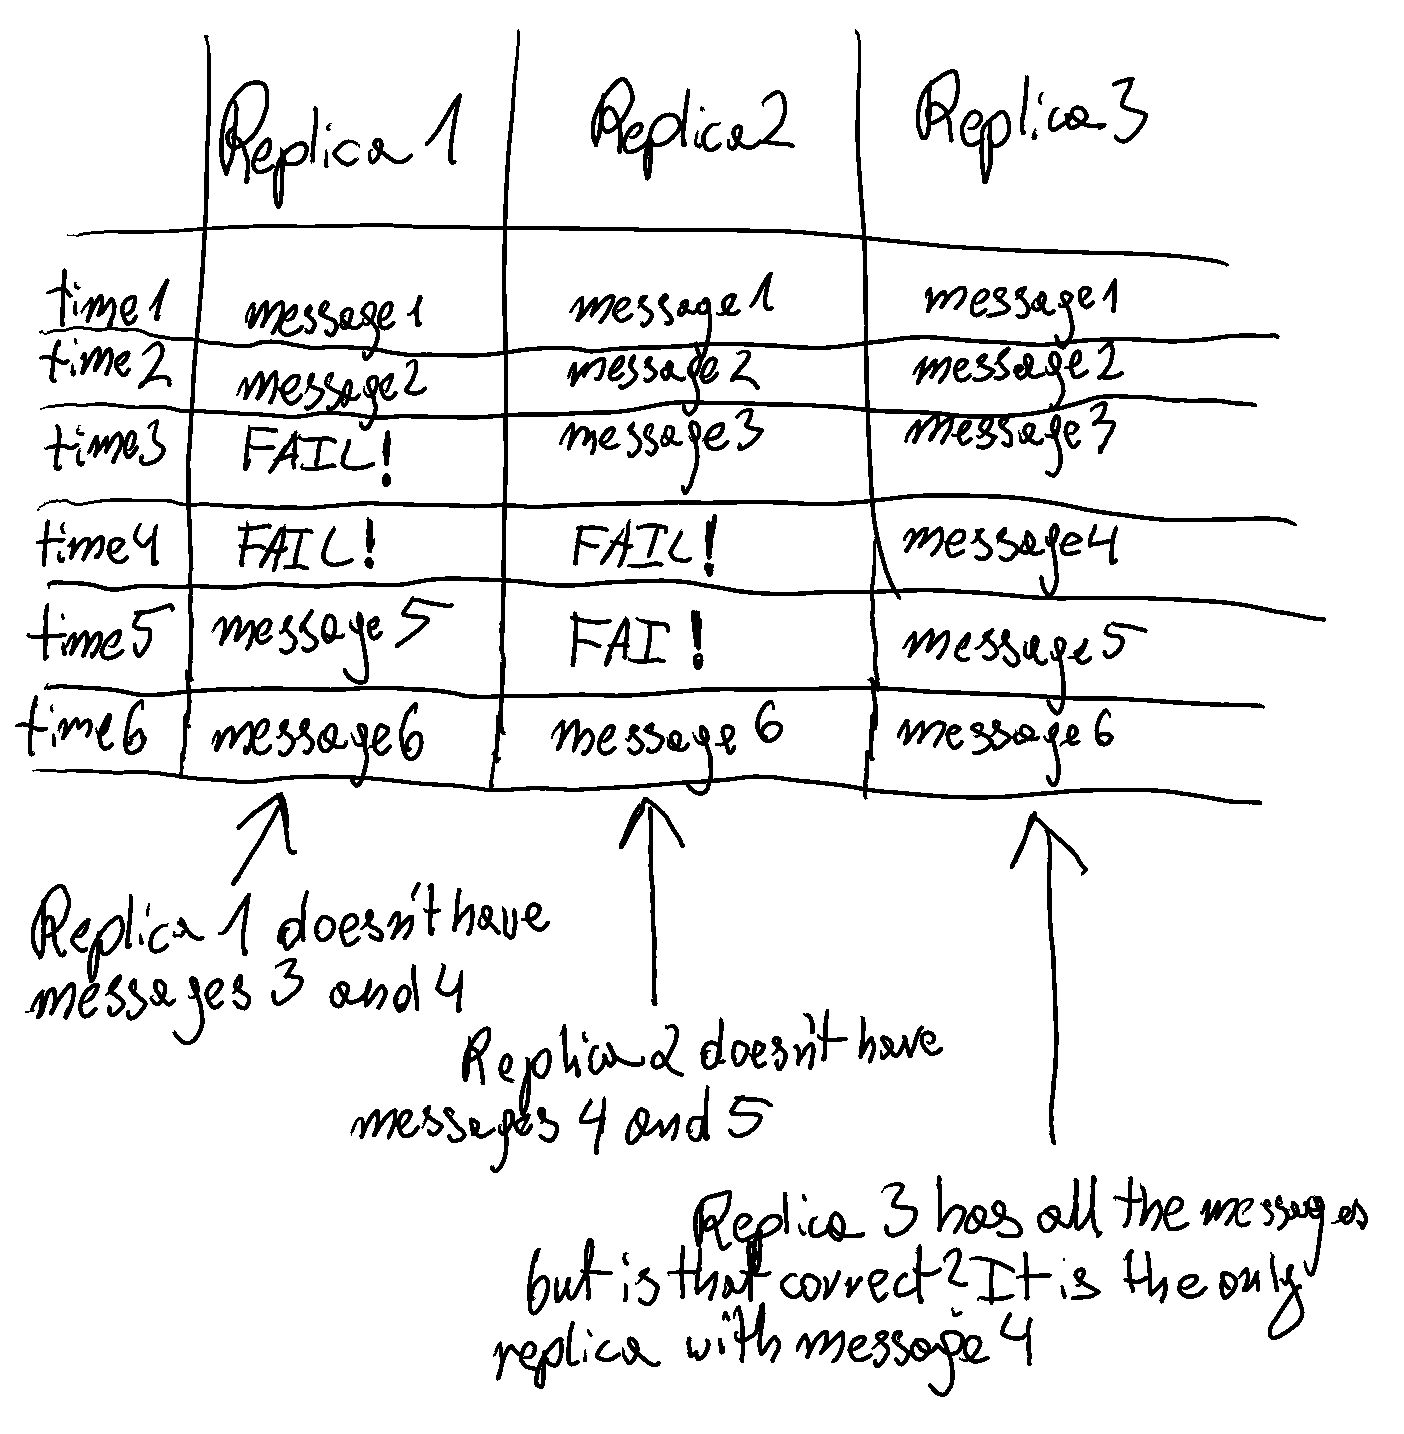 Replica 1 Replica 2 Replica 3
time1 message1 message1 message1
time2 message2 message2 message2
time3 FAIL! message3 message3
time4 FAIL! FAIL! message4
time5 message5 FAI ! message5
time6 message6 message6 message6
Replica 1 doesn't have
messages 3 and 4
Replica 2 doesn't have
messages 4 and 5
Replica 3 has all the messages
but is that correct? It is the only
replica with message 4